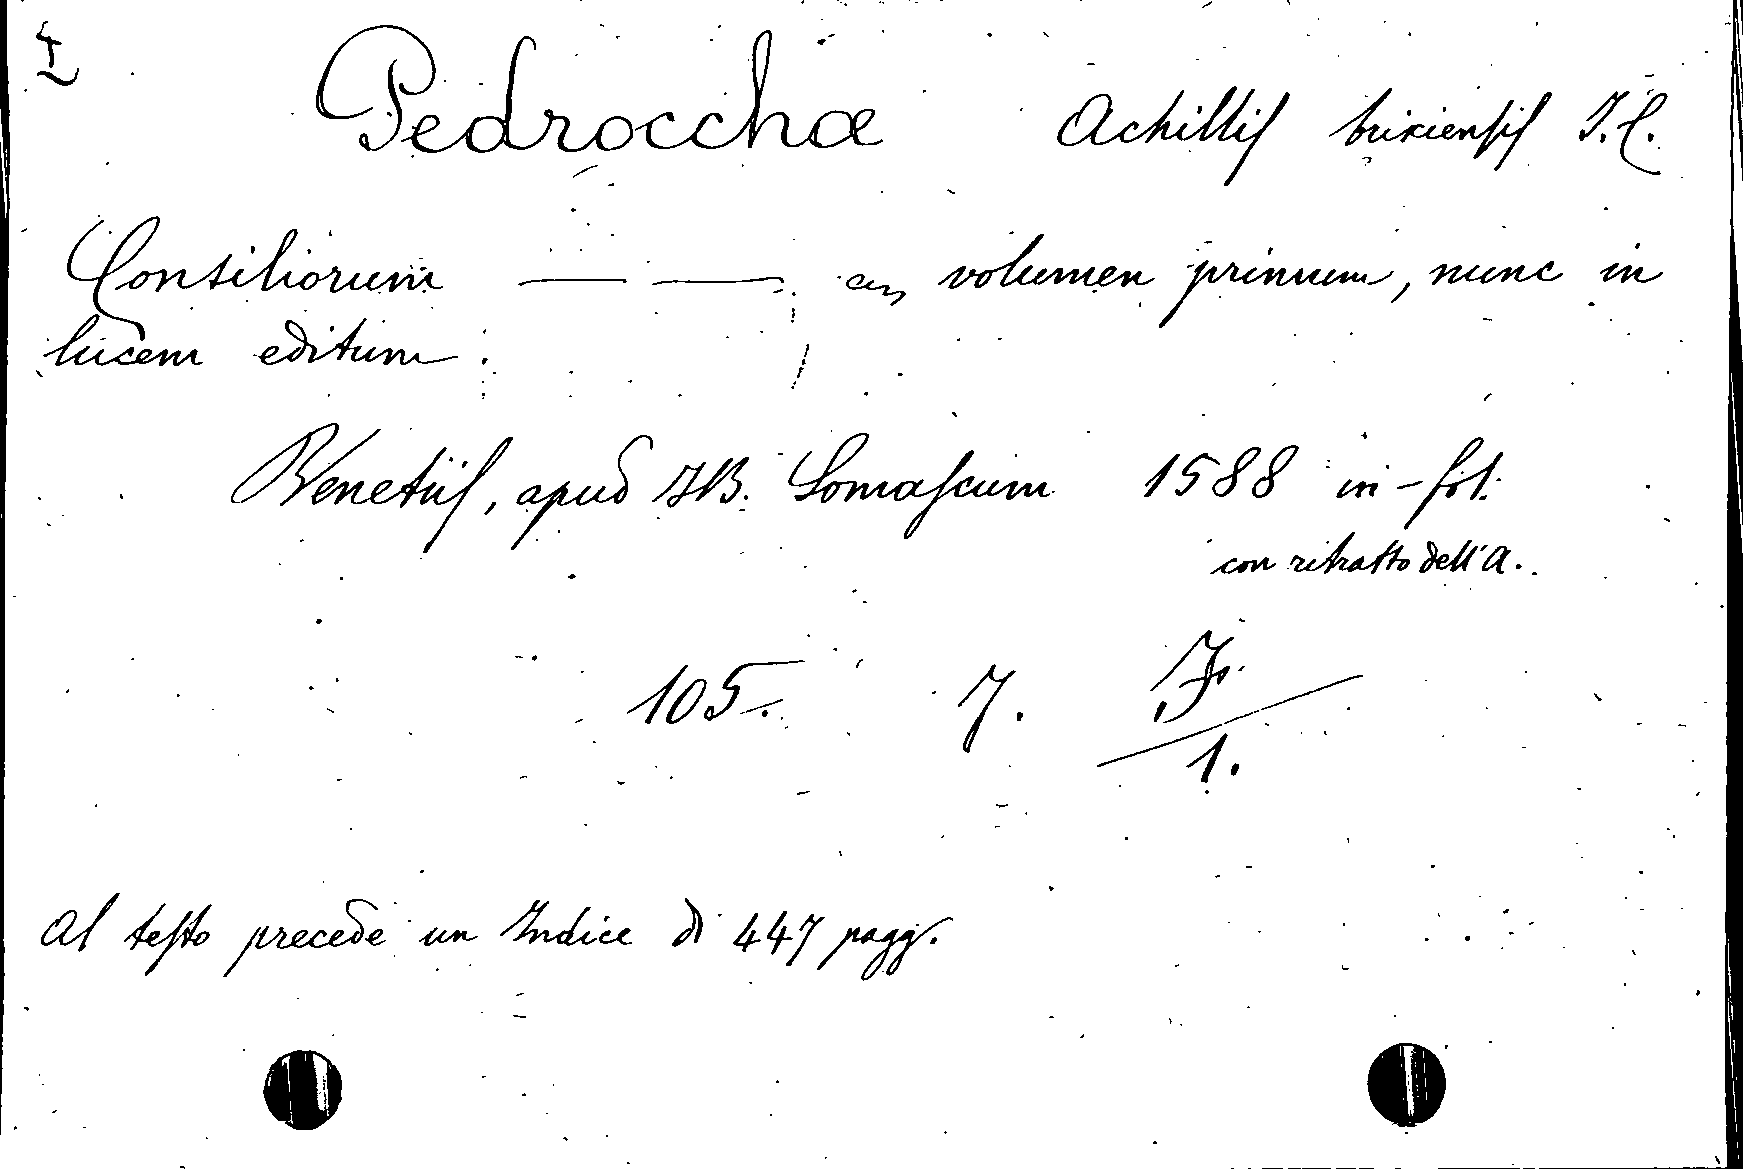 Pedrocchæ Achillis brixiensis I. C.
Consiliorum — — volumen primum, nunc in
lucem editum.
Venetiis, apud IB. Somascum 1588 in-fol.
con ritratto dell'A.
105. 7. F
1.
Al testo precede un Indice di 447 pagg.